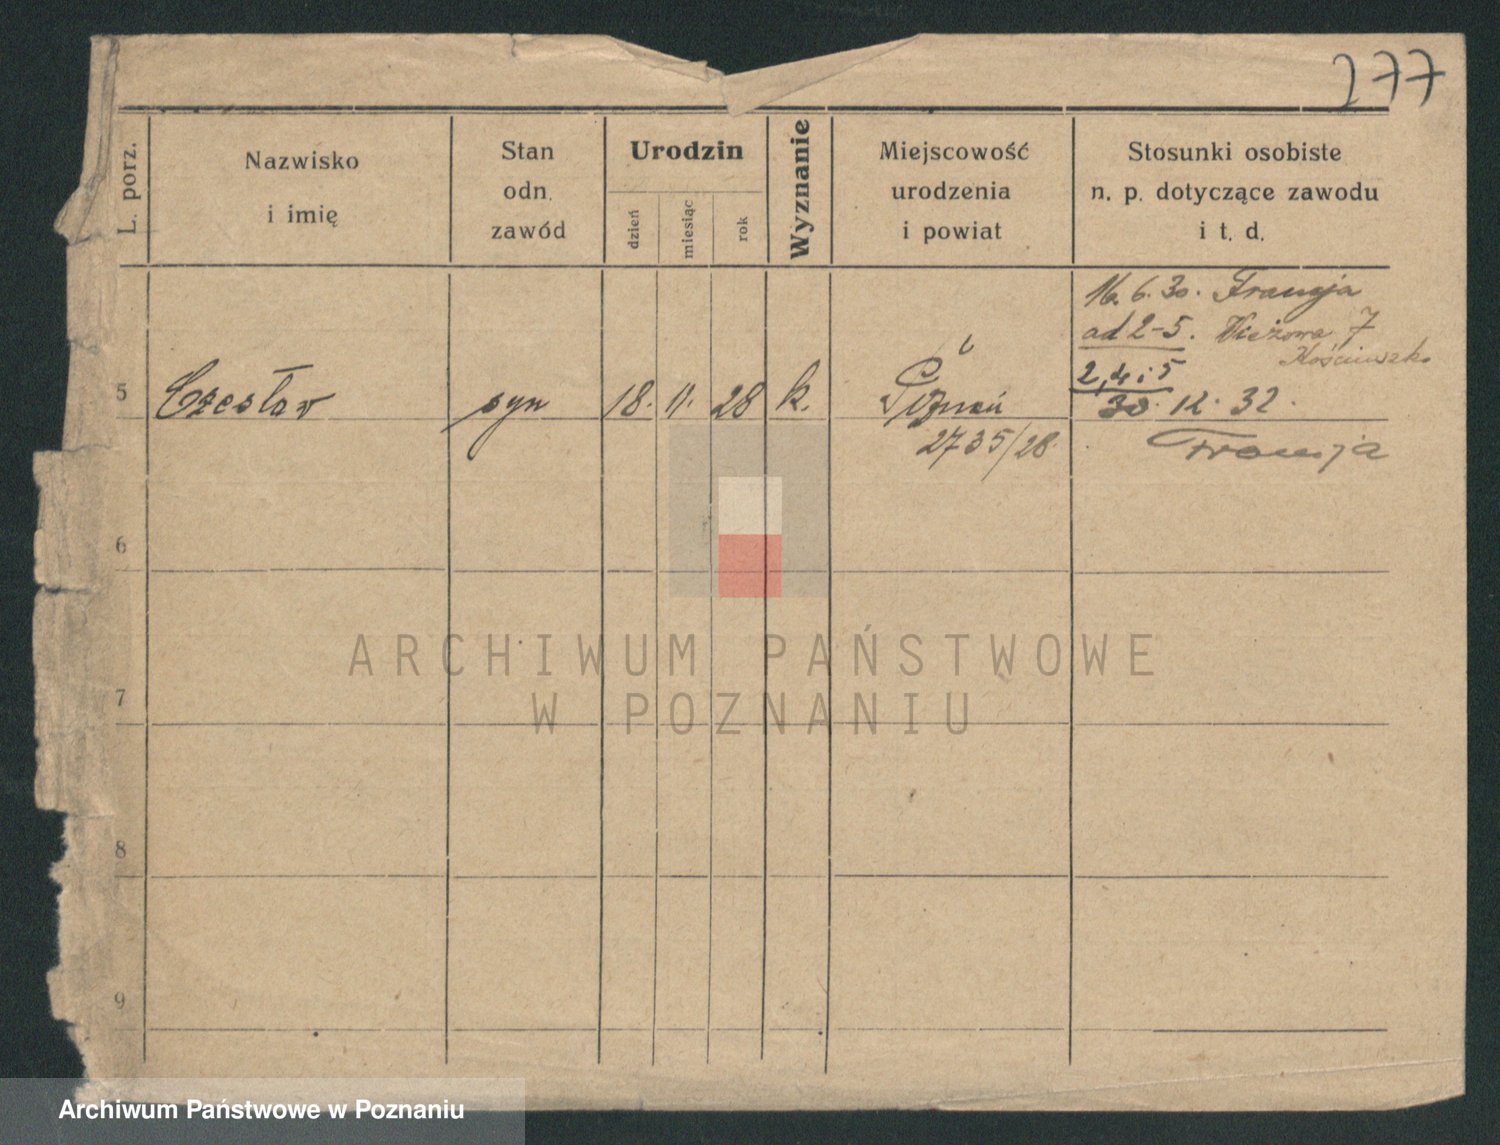 277
L. porz.
Nazwisko
i imię
Stan
odn.
zawód
Urodzin
dzień
miesiąc
rok
Wyznanie
Miejscowość
urodzenia
i powiat
Stosunki osobiste
n. p. dotyczące zawodu
i t. d.
16.6.30. Francja
ad 2-5. Wieżowa 7
2,4 i 5
5 Czesław syn 18. 11. 28 k. Poznań 30. 12. 32.
2735/28. Francja
6
7
8
9
ARCHIWUM PAŃSTWOWE
W POZNANIU
Archiwum Państwowe w Poznaniu